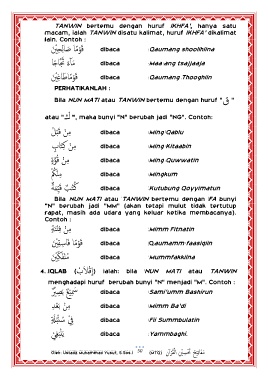 TANWIN bertemu dengan huruf IKHFA', hanya satu
macam, ialah TANWIN disatu kalimat, huruf IKHFA' dikalimat
lain. Contoh :
قَوْمًا صَالِحِيْنَ dibaca :Qaumang shoolihiina
مَآءً ثَجَّاجًا dibaca :Maa ang tsajjaaja
قَوْمًا طَاغِيْنَ dibaca :Qaumang Thooghiin
PERHATIKANLAH :
Bila NUN MATI atau TANWIN bertemu dengan huruf " ق "
atau " ك ", maka bunyi "N" berubah jadi "NG". Contoh:
مِنْ قَبْلُ dibaca :Ming Qablu
مِنْ كِتَابٍ dibaca :Ming Kitaabin
مِنْ قُوَّةٍ dibaca :Ming Quwwatin
مِنْكُمْ dibaca :Mingkum
كُتُبٌ قَيِّمَةٌ dibaca :Kutubung Qoyyimatun
Bila NUN MATI atau TANWIN bertemu dengan FA bunyi
"N" berubah jadi "MM" (akan tetapi mulut tidak tertutup
rapat, masih ada udara yang keluar ketika membacanya).
Contoh :
مِنْ فِتْنَةٍ dibaca :Mimm Fitnatin
قَوْمًا فَاسِقِيْنَ dibaca :Qaumamm faasiqiin
مُنْفَكِّيْنَ dibaca :Mummfakkiina
4. IQLAB (إِقْلَابْ) ialah: bila NUN MATI atau TANWIN
menghadapi huruf berubah bunyi "N" menjadi "M". Contoh :
سَمِيْعٌ بَصِيْرٌ dibaca :Sami'umm Bashirun
مِنْ بَعْدِ dibaca :Mimm Ba'di
فِيْ سُنْبُلَةٍ dibaca :Fii Summbulatin
يَنْبَغِيْ dibaca :Yammbaghi.
Oleh: Ustadz Muhammad Yusuf, S.Sos.I (MTQ)